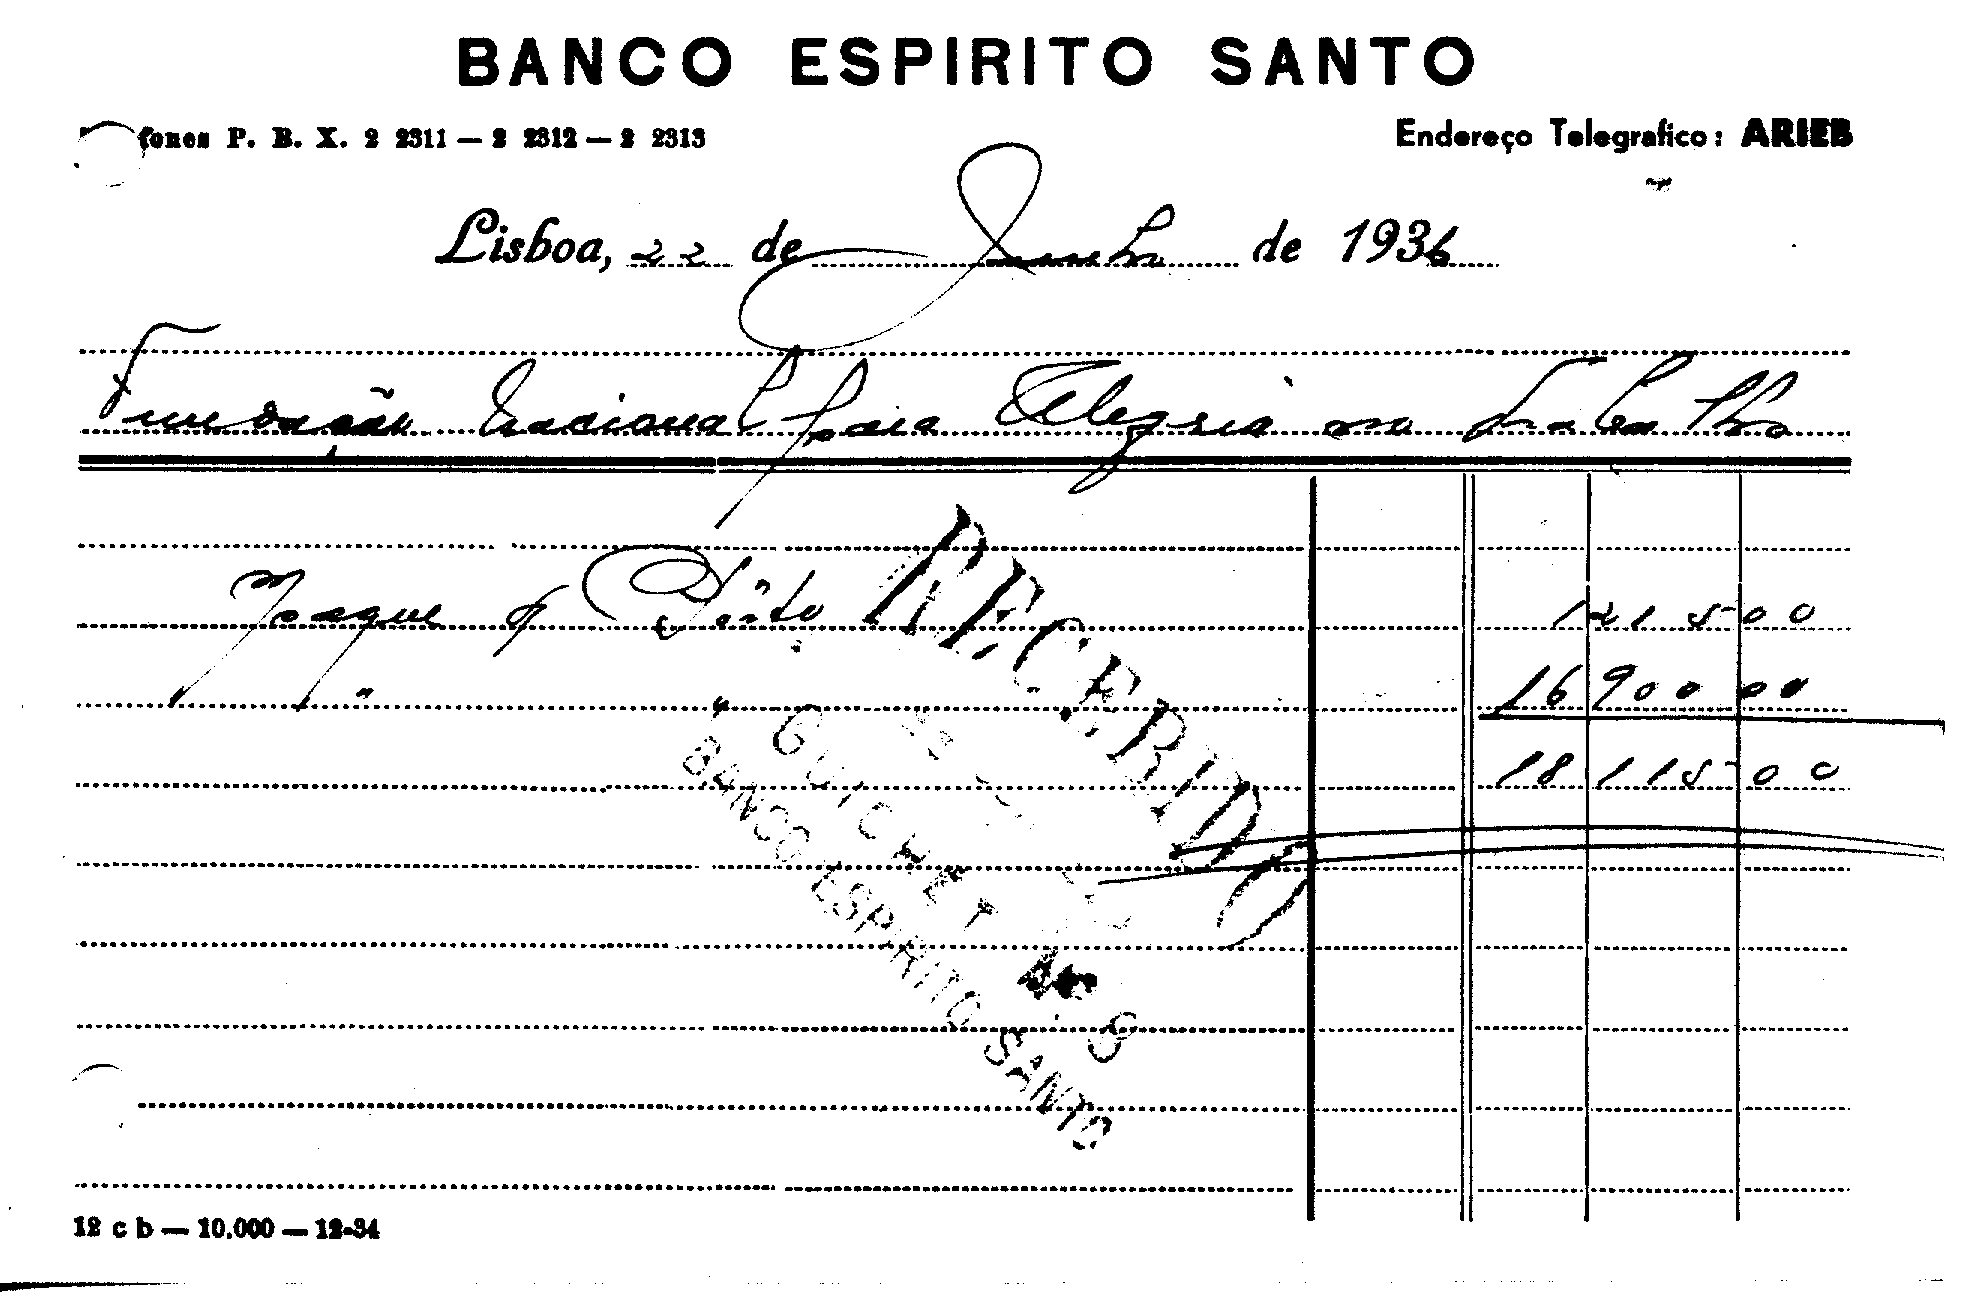 BANCO ESPIRITO SANTO
fones P. B. X. 2 2311 — 2 2312 — 2 2313
Endereço Telegrafico: ARIEB
Lisboa, 22 de Junho de 1936
Fundação Nacional para Alegria no Trabalho
s/ Pôrto 121500
" " 1690000
1811500
RECEBIDO
GUICHET Nº 8
BANCO ESPIRITO SANTO
12 c b — 10.000 — 12-34